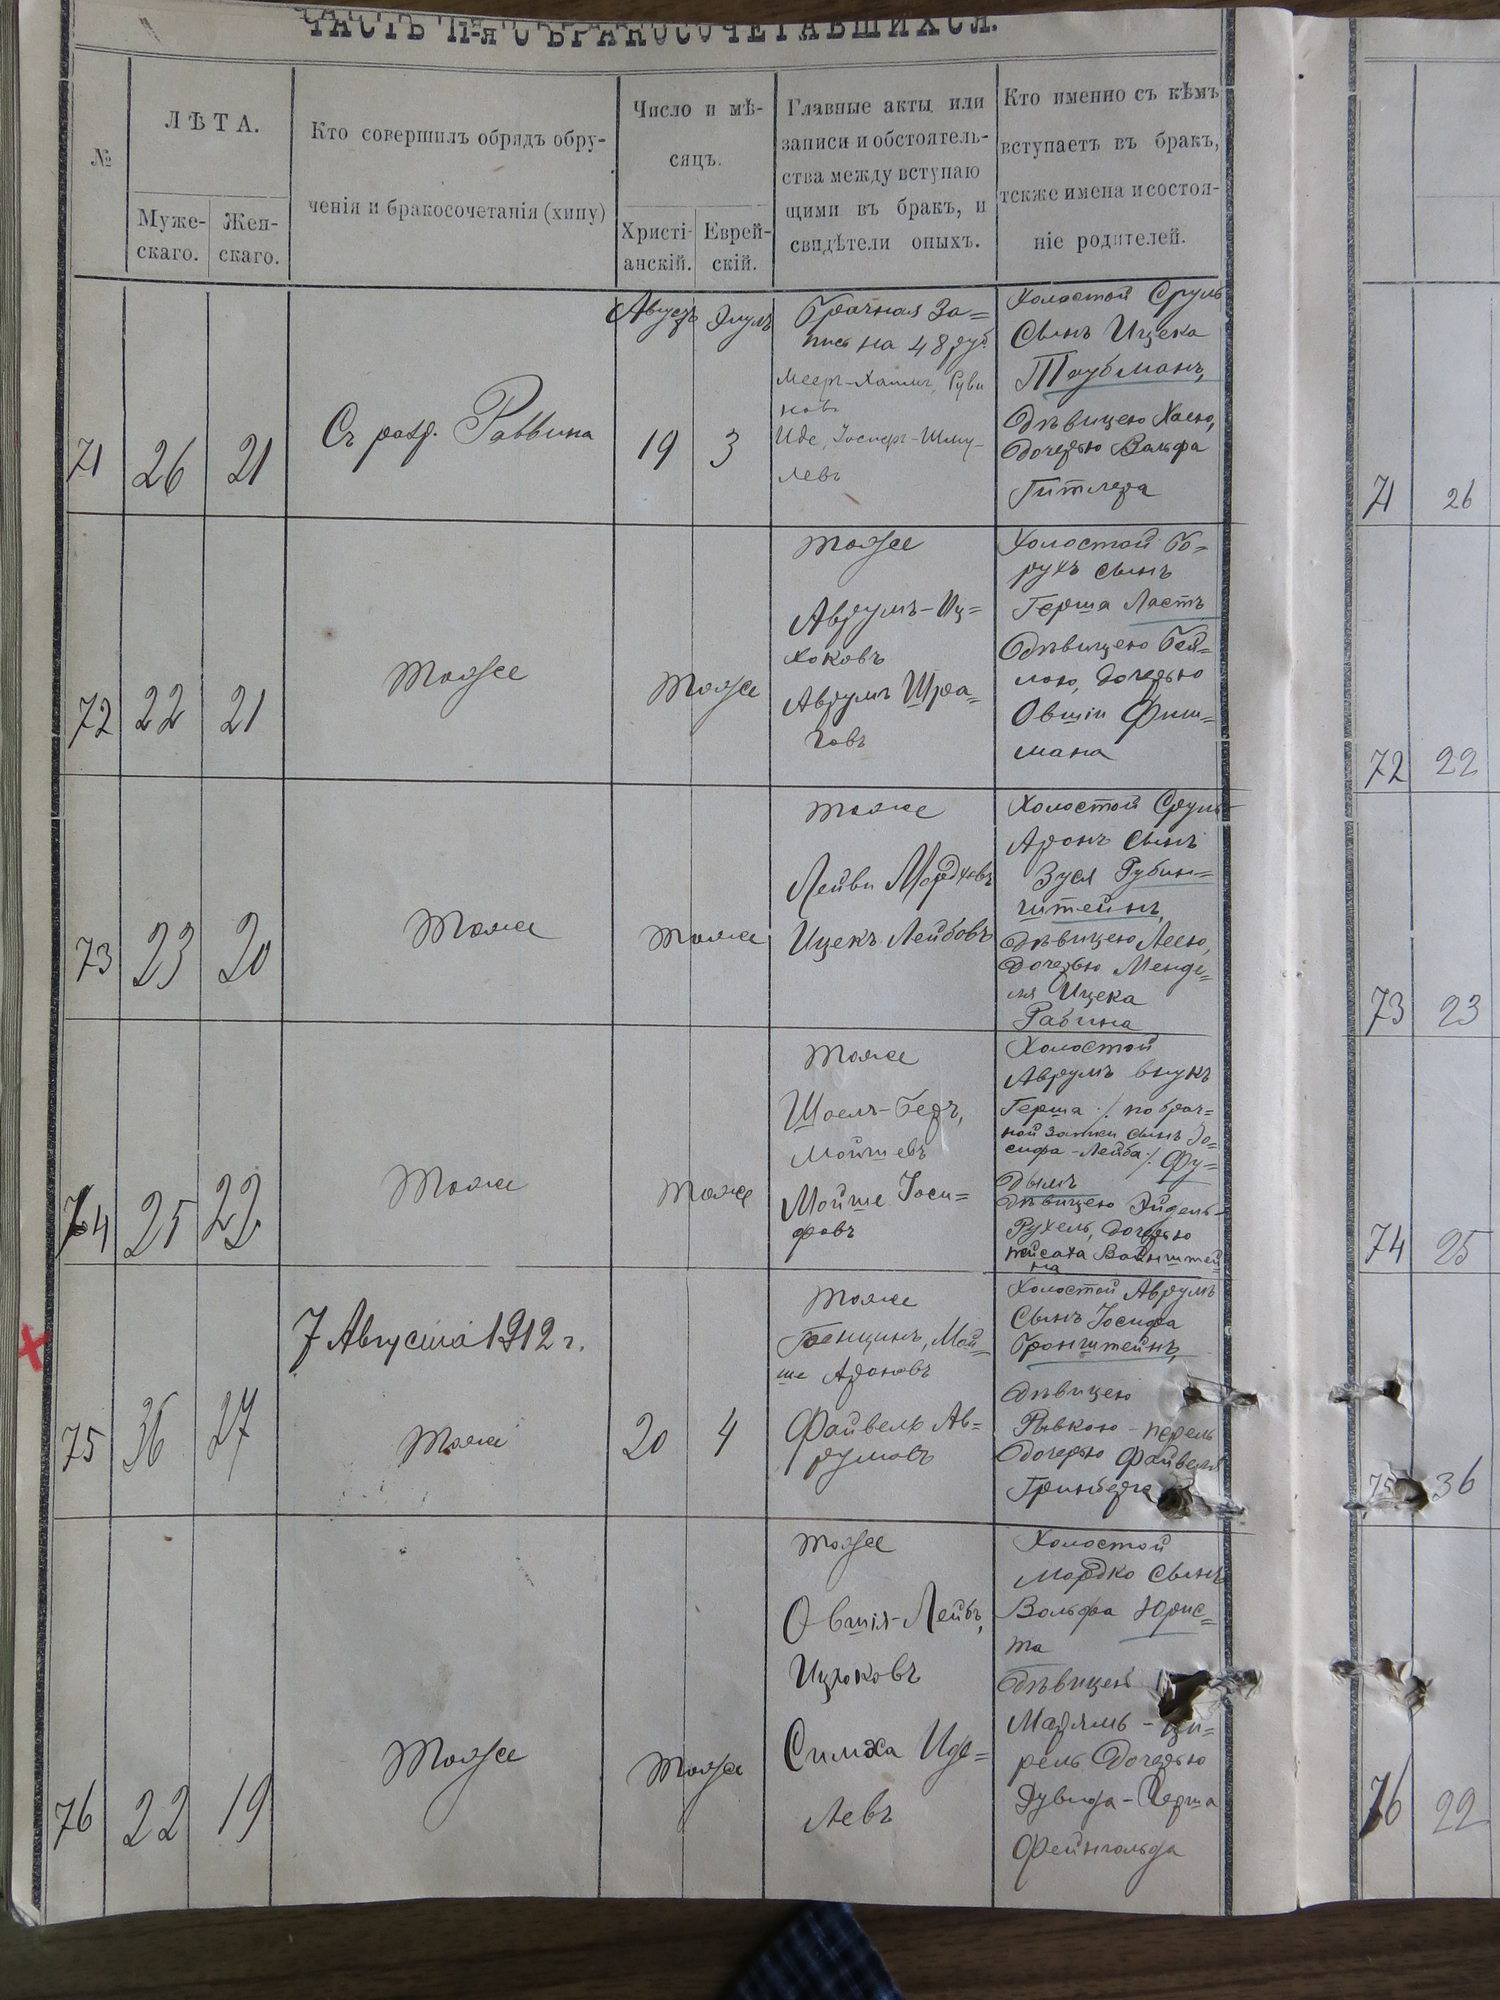 ЧАСТЬ II-я О БРАКОСОЧЕТАВШИХСЯ.
№
ЛѢТА.
Муже-
скаго.
Жен-
скаго.
Кто совершилъ обрядъ обру-
ченія и бракосочетанія (хипу)
Число и мѣ-
сяцъ.
Христі-
анскій.
Еврей-
скій.
Главные акты или
записи и обстоятель-
ства между вступаю
щими въ бракъ, и
свидѣтели оныхъ.
Кто именно съ кѣмъ
вступаетъ въ бракъ,
также имена и состоя-
ніе родителей.
71
26
21
Съ разр. Раввина
Августъ
Элулъ
19
3
Брачная За=
пись на 48 руб.
Мееръ-Хаимъ, Руви
новъ
Иде, Іосперъ-Шму-
левъ
Холостой Сруль
Сынъ Ицека
Таубманъ,
Дѣвицею Хаею,
Дочерью Вольфа
Гитлера
72
22
21
Тоже
Тоже
Тоже
Аврумъ-Иц=
хоковъ
Аврумъ Шра=
говъ
Холостой Бо=
рухъ сынъ
Герша Ластъ
Дѣвицею Бей=
лою, дочерью
Овшіи Фиш=
мана
73
23
20
Тоже
Тоже
Тоже
Лейви Мордховъ
Ицекъ Лейбовъ
Холостой Сруль-
Аронъ Сынъ
Зуся Рубин=
штейнъ,
Дѣвицею Леею,
Дочерью Менде=
ля Ицека
Рабина
74
25
22
Тоже
Тоже
Тоже
Шоелъ-Беръ,
Мойшевъ
Мойше Іоси=
фовъ
Холостой
Аврумъ внукъ
Герша ./. по брач=
ной записи сынъ Іо=
сифа-Лейба ./. Фу=
дымъ
Дѣвицею Эйдель-
Рухель, дочерью
Пейсаха Вайнштей
на
7 Августа 1912 г.
75
36
27
Тоже
20
4
Тоже
Бенционъ, Мой=
ше Ароновъ
Файвель Ав=
румовъ
Холостой Аврумъ
Сынъ Іосифа
Бронштейнъ,
Дѣвицею
Рывкою-Перель
Дочерью Файвеля
Гринберга
76
22
19
Тоже
Тоже
Тоже
Овшія-Лейбъ,
Ицхоковъ
Симха Иде=
левъ
Холостой
Мордко Сынъ
Вольфа Юрис=
та
Дѣвицею
Марямъ-Ци=
рель Дочерью
Дувида-Герша
Фейнгольда
71
26
72
22
73
23
74
25
75
36
76
22